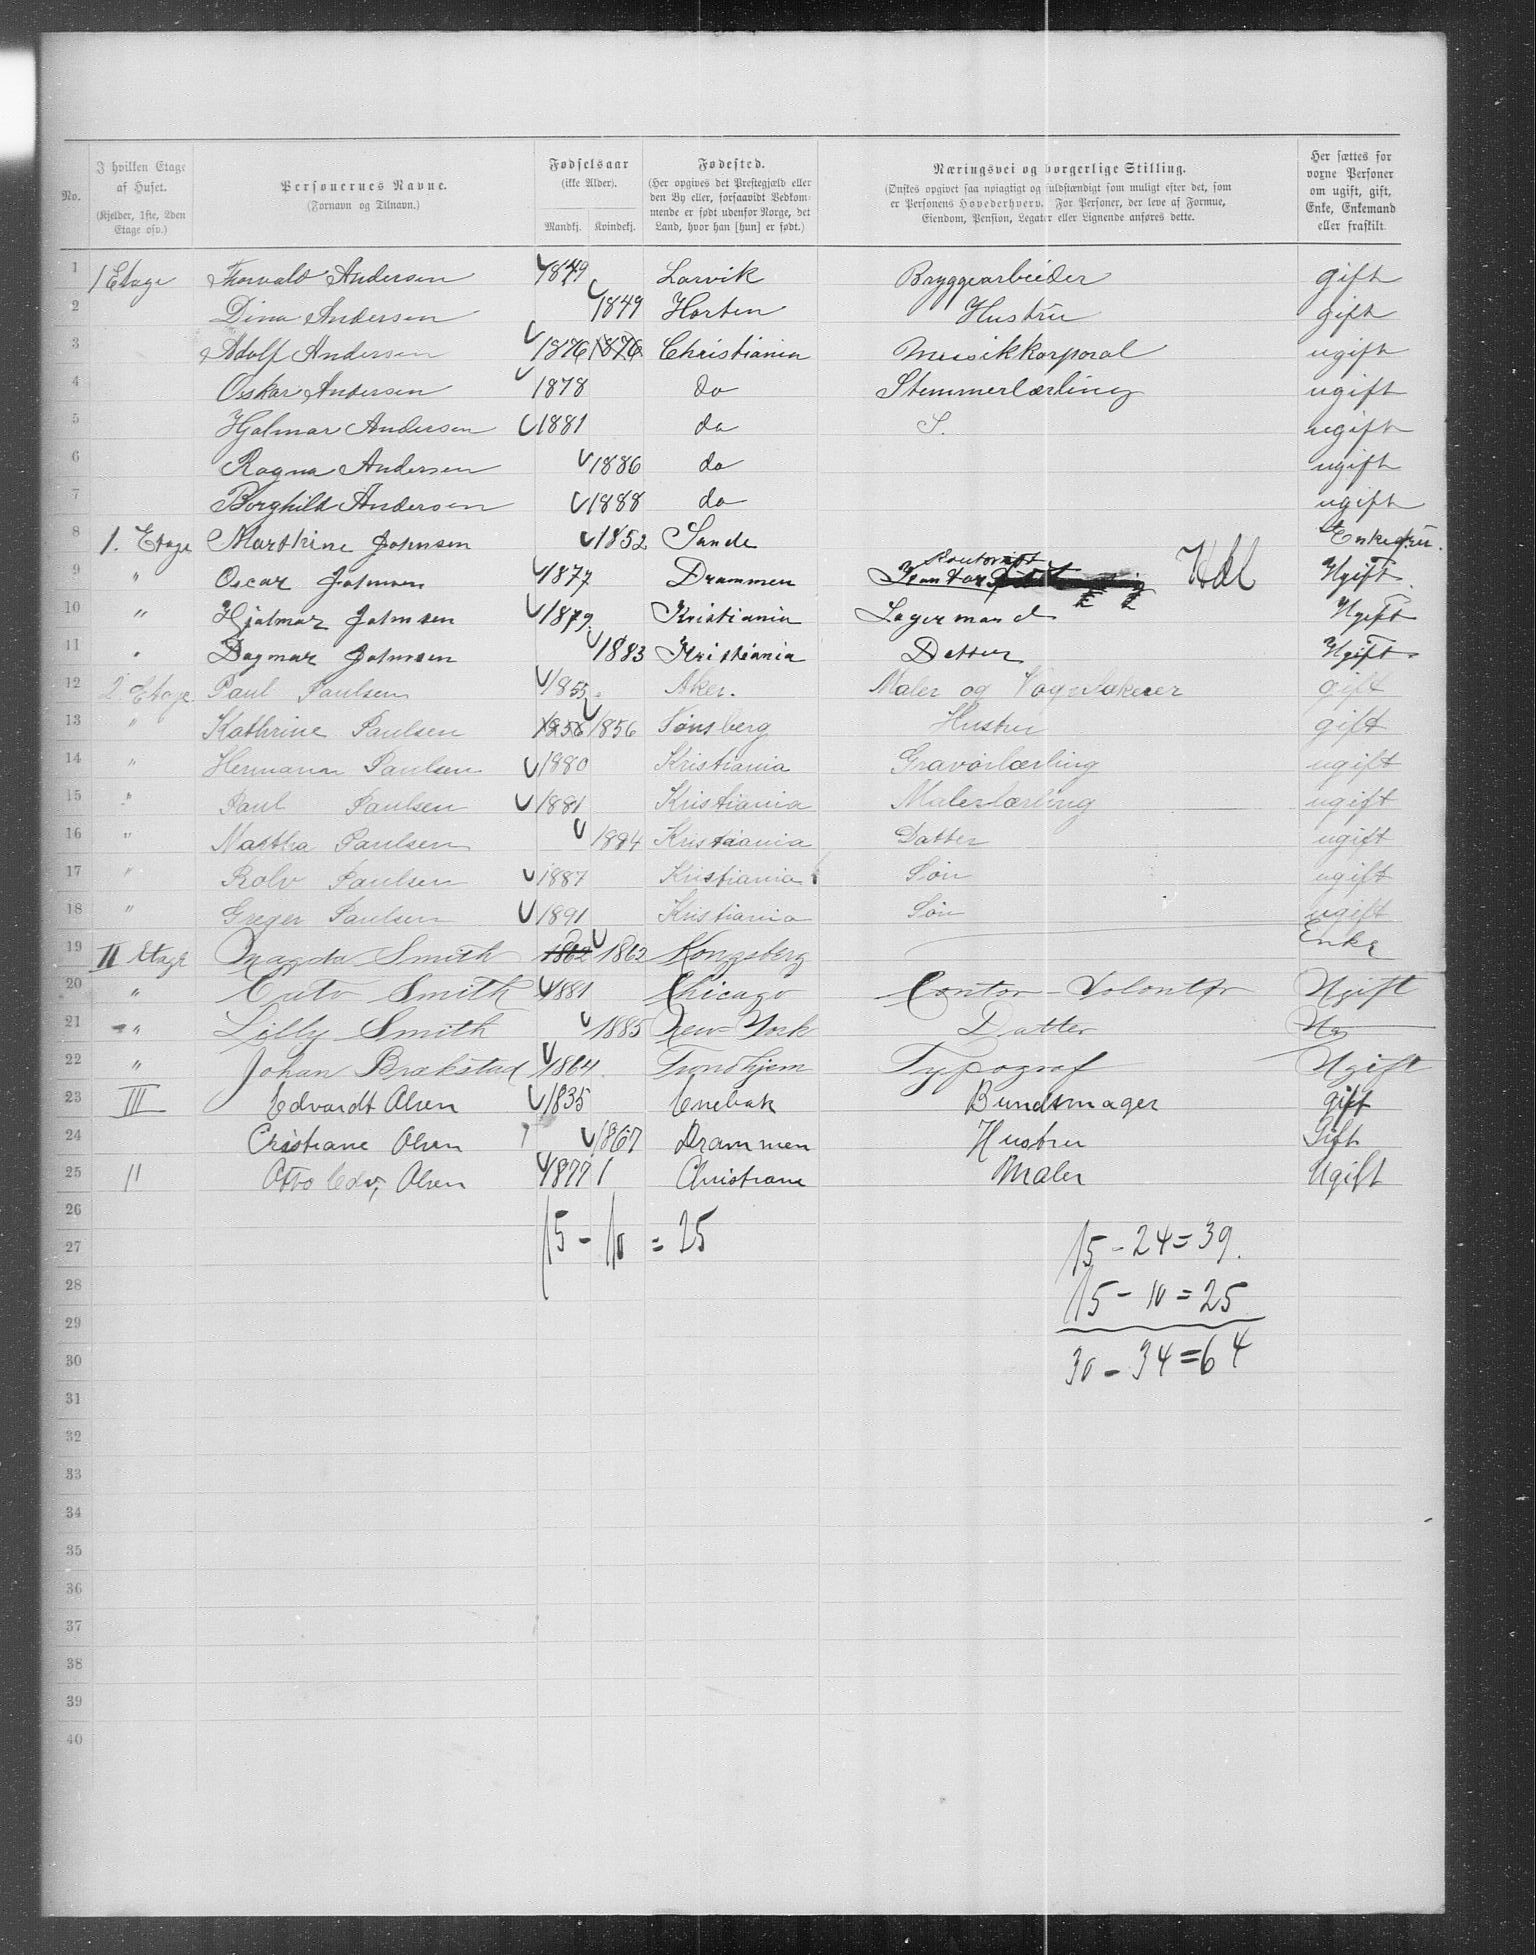 No.
I hvilken Etage af Huset.
(Kjelder, 1ste, 2den Etage osv.)
Personernes Navne.
(Fornavn og Tilnavn.)
Fødselsaar
(ikke Alder).
Mandkj. Kvindekj.
Fødested.
(Her opgives det Præstegjæld eller
den By eller, forsaavidt Vedkom-
mende er født udenfor Norge, det
Land, hvor han [hun] er født.)
Næringsvei og borgerlige Stilling.
(Ønskes opgivet saa nøiagtigt og fuldstændigt som muligt efter det, som
er Personens Hovederhverv. For Personer, der leve af Formue,
Eiendom, Pension, Legater eller Lignende anføres dette.
Her sættes for
voxne Personer
om ugift, gift,
Enke, Enkemand
eller fraskilt.
1 1 Etage Thorvald Andersen 1849 Larvik Bryggearbeider gift
2 Dina Andersen 1849 Horten Hustru gift
3 Adolf Andersen 1876 1876 Christiania Musikkorporal ugift
4 Osskar Andersen 1878 do Stemmerlærling ugift
5 Hjalmar Andersen 1881 do S. ugift
6 Ragna Andersen 1886 do ugift
7 Borghild Andersen 1888 do ugift
8 1. Etage Marthine Johnsen 1852 Sande Enkefru.
9 " Oscar Johnsen 1877 Drammen Kontorist Hdl Ugift
10 " Hjalmar Johnsen 1879 Kristiania Lagermand Ugift
11 " Dagmar Johnsen 1883 Kristiania Datter Ugift
12 2. Etage Paul Paulsen 1855 Aker. Maler og gift
13 " Kathrine Paulsen 1856 1856 Tønsberg Hustru gift
14 " Hermann Paulsen 1880 Kristiania Gravørlærling ugift
15 " Paul Paulsen 1881 Kristiania Malerlærling ugift
16 " Martha Paulsen 1884 Kristiania Datter ugift
17 " Rolv Paulsen 1887 Kristiania Søn ugift
18 " Greger Paulsen 1891 Kristiania Søn ugift
19 II Etage Magda Smith 1862 1862 Kongsberg Enke
20 " Smith 1881 Chicago Contor-Volontør Ugift
21 " Lilly Smith 1885 New-York Datter Ug
22 " Johan Brækstad 1864 Trondhjem Typograf Ugift
23 III Edvardt Olsen 1835 Enebak Bundtmager gift
24 Cristiane Olsen 1867 Drammen Hustru Gift
25 II Otto Edv, Olsen 1877 Christiane Maler Ugift
26 15 - 10 = 25
27 15 - 24 = 39.
28 15 - 10 = 25
29
30 30 - 34 = 64
31
32
33
34
35
36
37
38
39
40